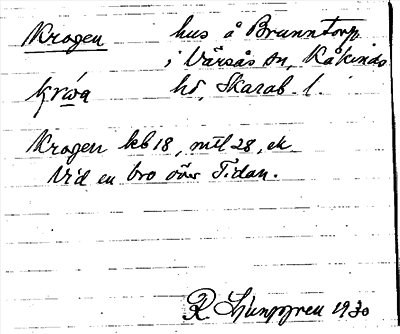 Krogen hus å Brunntorp
i Värsås sn, Kåkinds
hd, Skarab. l.
Krogen kb 18, mtl 28, ek
Vid en bro över Tidan.
R Ljunggren 1930